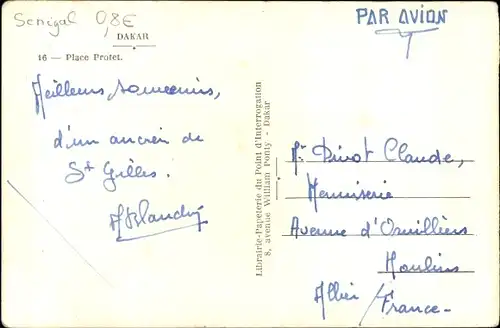 Senigal 0,8€
PAR AVION
DAKAR
16 — Place Protet.
Meilleurs souvenirs,
d'un ancien de
St Gilles.
Librairie-Papeterie du Point d'Interrogation
8, avenue William Ponty - Dakar
Mr Pivot Claude,
Menuiserie
Avenue d'Orvilliers
Moulins
Allier / France-